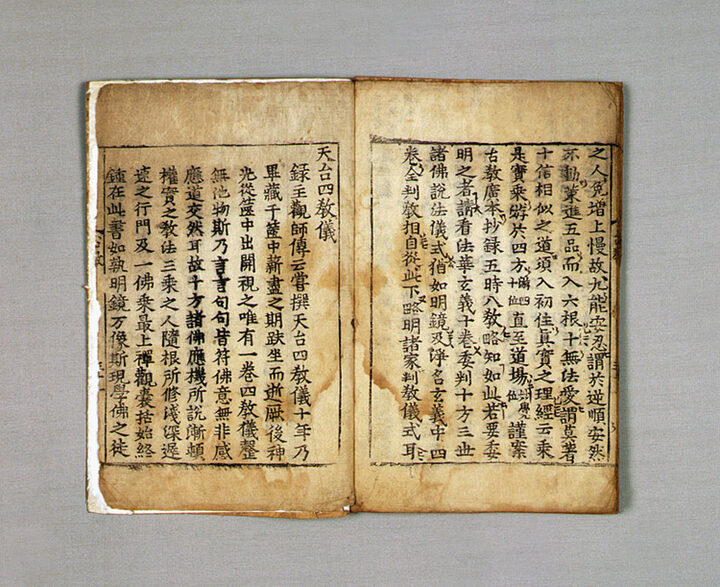 之人免增上慢故九能安忍謂於逆順安然
不動策進五品而入六根十無法愛謂莫著
十信相似之道須入初住真實之理經云乘
是寶乘遊於四方直至道場謹案
古教廣本抄錄五時八教略知如此若要委
明之者請看法華玄義十卷委判十方三世
諸佛說法儀式猶如明鏡及淨名玄義中四
卷全判教相自從此下略明諸家判教儀式耳
天台四教儀
錄主觀師傳云嘗撰天台四教儀十年乃
畢藏于篋中薪盡之期趺坐而逝厥後神
光從篋中出開視之唯有一卷四教儀整
無他物斯乃言言句句皆符佛意無非感
應道交然耳故十方諸佛應機所說漸頓
權實之教法三乘之人隨根所修淺深遲
速之行門及一佛乘最上禪觀囊括始終
鍾在此書如執明鏡万像斯現學佛之徒